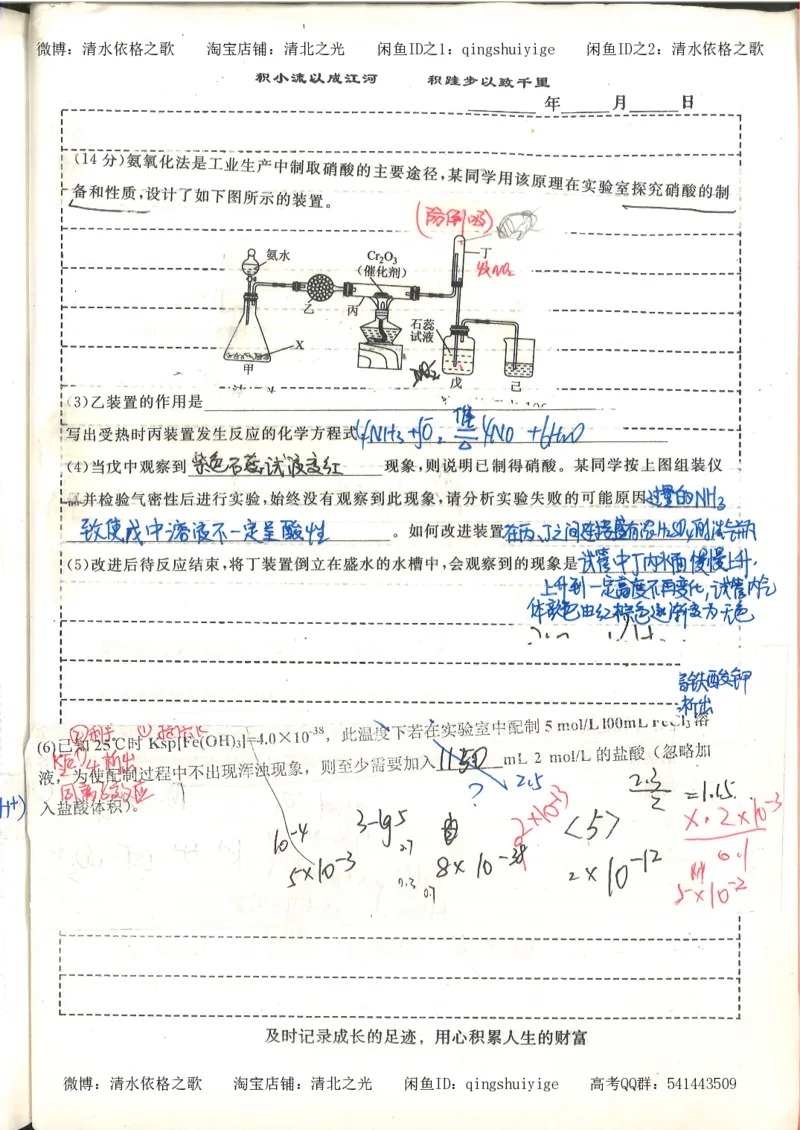 微博：清水依格之歌 淘宝店铺：清北之光 闲鱼ID之1：qingshuiyige 闲鱼ID之2：清水依格之歌
积小流以成江河 积跬步以致千里
年 月 日
(14分)氨氧化法是工业生产中制取硝酸的主要途径,某同学用该原理在实验室探究硝酸的制
备和性质,设计了如下图所示的装置。
(防倒吸)
氨水
Cr₂O₃
(催化剂)
丁
收NO₂
乙
丙
石蕊
试液
X
甲
戊
己
(3)乙装置的作用是
写出受热时丙装置发生反应的化学方程式 4NH₃+5O₂ 催/△ 4NO+6H₂O
(4)当戊中观察到 紫色石蕊试液变红 现象,则说明已制得硝酸。某同学按上图组装仪
器并检验气密性后进行实验,始终没有观察到此现象,请分析实验失败的可能原因 过量的NH₃
致使戊中溶液不一定呈酸性 。如何改进装置 在丙、丁之间连接盛有浓H₂SO₄的洗气瓶
(5)改进后待反应结束,将丁装置倒立在盛水的水槽中,会观察到的现象是 试管中丁内水面慢慢上升,
上升到一定高度不再变化,试管内气
体颜色由红棕色逐渐变为无色
高铁酸钾
析出
(6)已知25℃时 Ksp[Fe(OH)₃]=4.0×10⁻³⁸，此温度下若在实验室中配制 5 mol/L 100mL FeCl₃溶
液，为使配制过程中不出现浑浊现象，则至少需要加入 mL 2 mol/L 的盐酸（忽略加
入盐酸体积）。
H⁺)
同离子效应
? 2.5
2.3/2 =1.15
10⁻⁴
3-lg5
2×10⁻¹³
<5>
x·2×10⁻³
0.1
5×10⁻³
0.7
8×10⁻³⁸
2×10⁻¹²
0.3 0.7
5×10⁻²
及时记录成长的足迹，用心积累人生的财富
微博：清水依格之歌 淘宝店铺：清北之光 闲鱼ID：qingshuiyige 高考QQ群：541443509